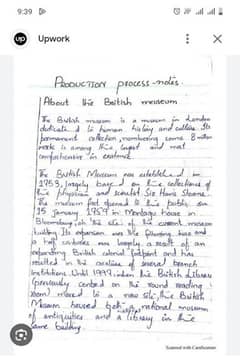 9:39
Upwork
PRODUCTION process-notes.
About the British museum
The British museum is a museum in London
dedicated to human history and culture. Its
permanent collection, numbering some 8 million
works is among the largest and most
comprehensive in existence.
The British Museum was established in
1753, largely based on the collections of
the physician and scientist Sir Hans Sloane.
The museum first opened to the public on
15 January, 1759 in Montagu house in
Bloomsbury, on the site of the current museum
building. Its expansion over the following two and
a half centuries was largely a result of an
expanding British colonial footprint and has
resulted in the creation of several branch
institutions. Until 1997, when the British Library
(previously centred on the round reading
room) moved to a new site, the British
Museum housed both a national museum
of antiquities and a library in the
same building.
Scanned with CamScanner